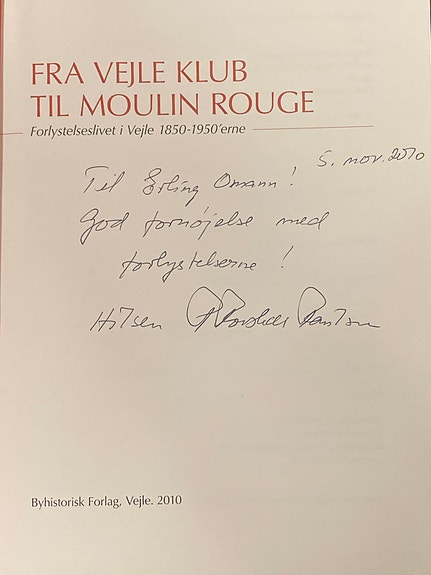 FRA VEJLE KLUB
TIL MOULIN ROUGE
Forlystelseslivet i Vejle 1850-1950'erne
5. nov. 2010
Til Erling Omann!
God fornøjelse med
forlystelserne!
Hilsen
Byhistorisk Forlag, Vejle. 2010